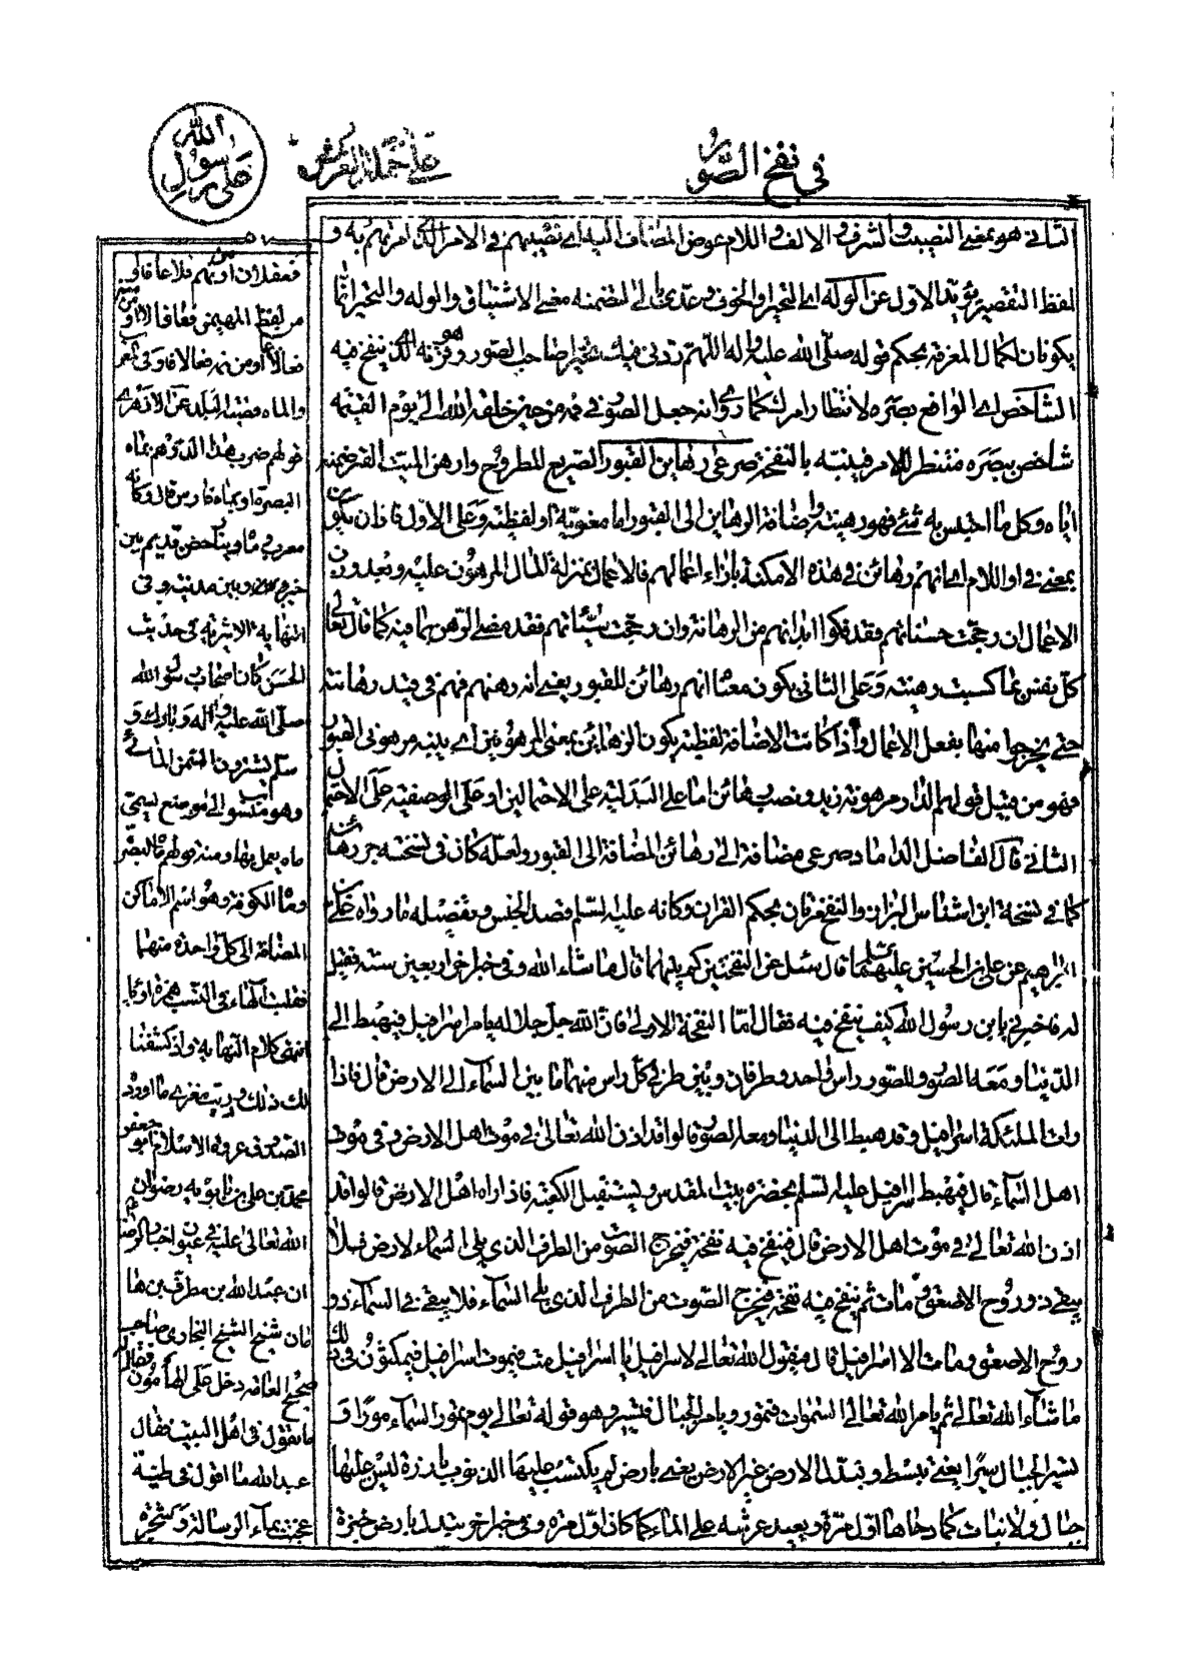 في نفخ الصور
على حملة العرش
الله
رسول
على
الثاني هو بمعنى النصيب والشرف والالف واللام عوض المضاف اليه اى نصيبهم في الامر الذى امرتهم به و
لفظ التقصير يؤيد الاول عن الوله اى التحير والخوف وعدى بالى لتضمنه معنى الاشتياق والوله والتحير انما
يكونان لكمال المعرفة بحكم قوله صلى الله عليه واله اللهم زدنى فيك تحيرا صاحب الصور وهو قرنه الذى ينفخ فيه
الشاخص اى الرافع بصره لانتظار امرك كما روى انه جعل الصور في فمه من حين خلقه الله الى يوم القيمة
شاخص ببصره منتظر للامر فينبه بالنفخة صرعى رهاين القبور الصريع المطروح وارهن الميت القبر ضمنه
اياه وكل ما احتبس به شئ فهو رهينه واضافة الرهاين الى القبور اما معنوية او لفظية وعلى الاول فاذن يكون
بمعنى في او اللام اى انهم رهائن في هذه الامكنة بازاء اعمالهم فالاعمال بمنزلة المال المرهون عليه وبعد وزن
الاعمال ان رجحت حسناتهم فقد فكوا ابدانهم من الرهانة وان رجحت سيئاتهم فقد مضى الرهن بما فيه كما قال تعالى
كل نفس بما كسبت رهينة وعلى الثاني يكون معناه انهم رهائن للقبور يعنى انه رهنهم فهم في قيد رهانته
حتى يخرجوا منها بفعل الاعمال واذا كانت الاضافة لفظية يكون الرهائن بمعنى المرهونين اى ينبه مرهونى القبور
فهو من قبيل قولهم الدار مرهونة زيد ونصب رهائن اما على البدلية على الاحتمالين او على الوصفية على الاحتمال
الثاني قال الفاضل الداماد صرعى مضافة الى رهائن المضافة الى القبور ولعله كان في نسخته جر رهائن
كما في نسخة ابن اشناس البزاز والنفخ نفختان بحكم القران وكانه عليه السلم قصد الجنس وتفصيله ما رواه على بن
ابراهيم عن على بن الحسين عليهما السلم قال سئل عن النفختين كم بينهما قال ما شاء الله وفى خبر اخر اربعين سنة فقيل
له فاخبرنى يا بن رسول الله كيف ينفخ فيه فقال اما النفخة الاولى فان الله جل جلاله يامر اسرافيل فيهبط الى
الدنيا ومعه الصور وللصور راس واحد وطرفان وبين طرف كل راس منهما ما بين السماء الى الارض قال فاذا
رات الملئكة اسرافيل وقد هبط الى الدنيا ومعه الصور قالوا قد اذن الله تعالى في موت اهل الارض وفى موت
اهل السماء قال فيهبط اسرافيل عليه السلم بحضرة بيت المقدس ويستقبل الكعبة فاذا راه اهل الارض قالوا قد
اذن الله تعالى في موت اهل الارض قال فينفخ فيه نفخة فيخرج الصوت من الطرف الذى يلى السماء لارض فلا
يبقى ذو روح الا صعق ومات ثم ينفخ فيه نفخة فيخرج الصوت من الطرف الذى يلى السماء فلا يبقى في السماء ذو
روح الا صعق ومات الا اسرافيل قال فيقول الله تعالى لاسرافيل يا اسرافيل مت فيموت اسرافيل فيمكثون في ذلك
ما شاء الله تعالى ثم يامر الله تعالى السموات فتمور ويامر الجبال فتسير وهو قوله تعالى يوم تمور السماء مورا و
تسير الجبال سيرا يعنى تبسط وتبدل الارض غير الارض يعنى بارض لم يكتسب عليها الذنوب بارزة ليس عليها
جبال ولا نبات كما دحاها اول مرة ويعيد عرشه على الماء كما كان اول مرة وفى خبر اخر تبدل بارض خبزة
٥٧
فعقلان او بهم فلاعا فاو
من لفظ المهيمن فعافالا او من
فعالا او من نه فعالا فاو في اشعر
والماه قصبة البلد عن الازهرى
قولهم ضرب هذا الدرهم بماه
البصرة او بماه فارس قال وكانه
معرب ماه وبناحض قديم بين
خبر وبين مدينة وفى
النهاية الاثيرية في حديث
الحسن كان اصحاب رسول الله
صلى الله عليه واله وبارك و
سلم يشترون السمن المائى
وهو منسوب الى مواضع تسمى
ماه يعمل بها ومنه قولهم ماه البصرة
وماه الكوفة وهو اسم الاماكن
المضافة الى كل واحدة منهما
فقلب الهاء في النسب همزة او يا
انتهى كلام النهاية واذ كشفنا
لك ذلك دريت مغزى ما اورد
الصدوق عروة الاسلام ابو جعفر
محمد بن على بن بابويه رضوان
الله تعالى عليه في عيون اخبار الرضا
ان عبد الله بن مطرف بن ماهان
شيخ الشيخ البخارى صاحب
صحيح العامه دخل على المأمون فقال له
ما تقول في اهل البيت فقال
عبد الله ما اقول في طينة
عجنت بماء الرسالة وشجرة